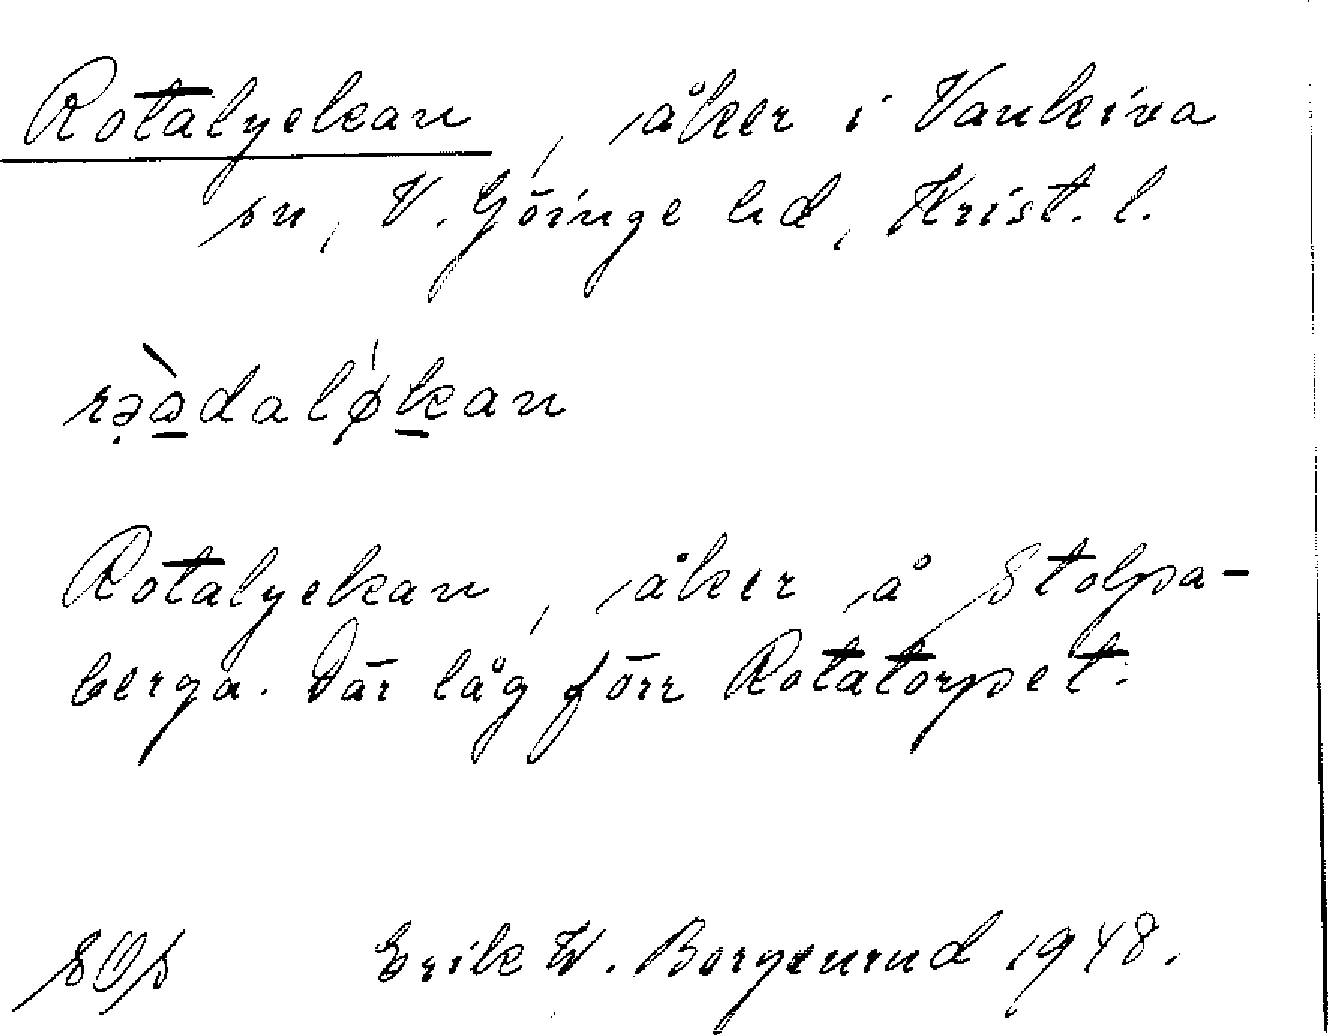 Rotalyckan, åker i Vankiva
sn, V. Göinge hd, Krist. l.
Rotalyckan, åker å Stolpa-
berga. Där låg förr Rotatorpet.
SOI Erik W. Bergenrud 1948.